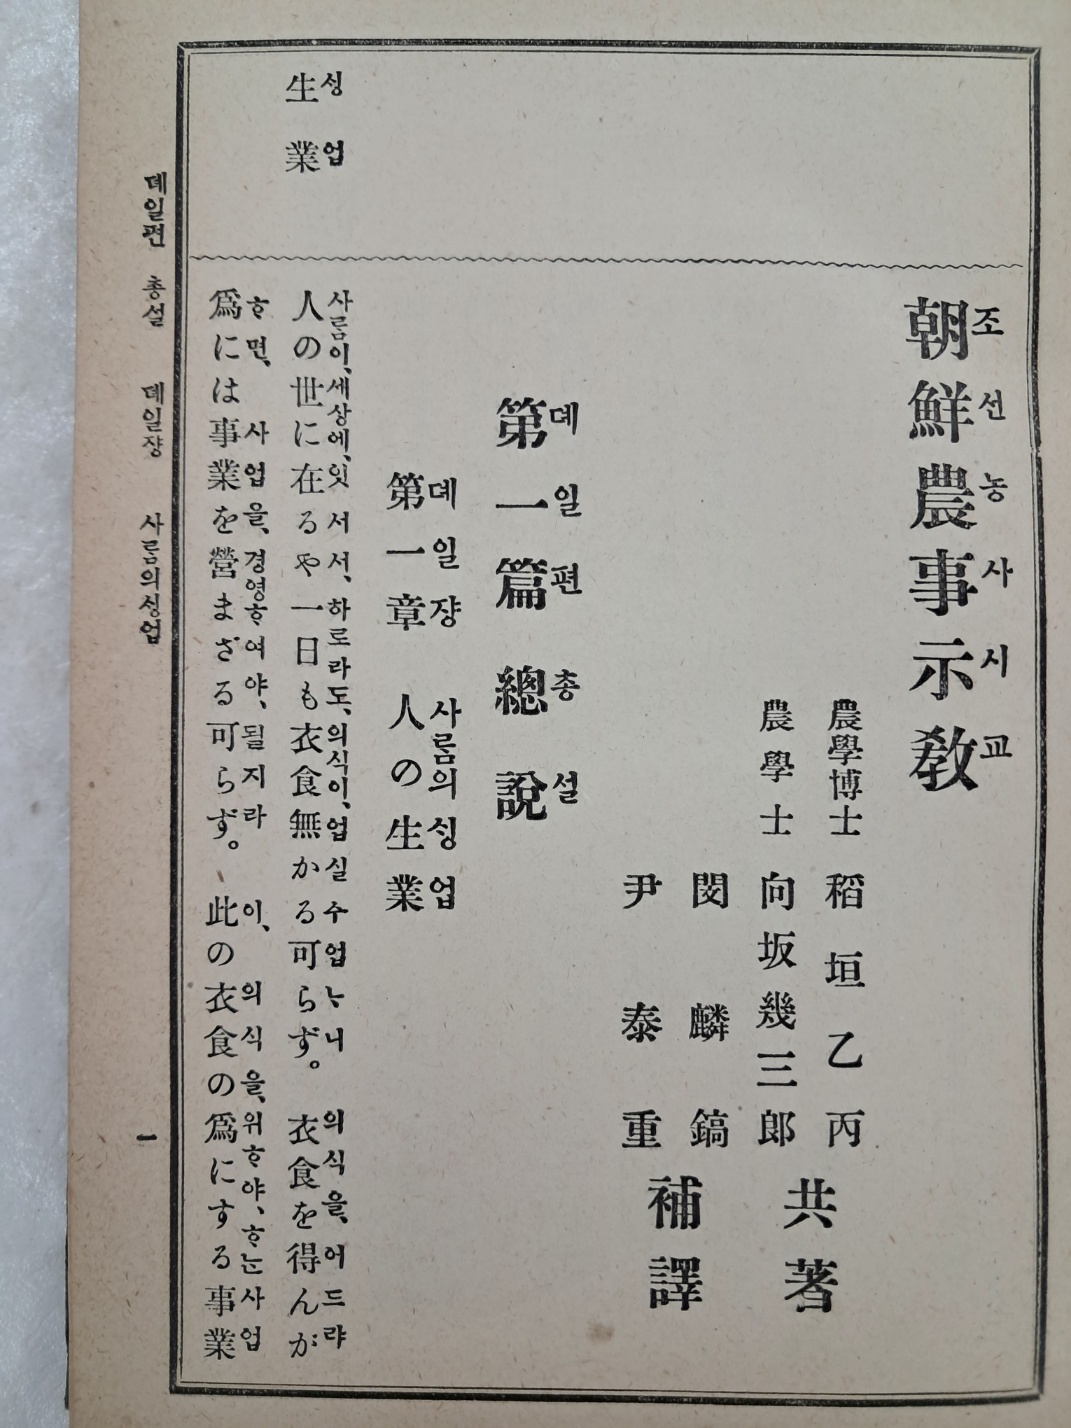 朝鮮農事示教
조선농사시교
農學博士 稻垣乙丙
農學士 向坂幾三郎
共著
閔麟鎬
尹泰重
補譯
第一篇 總說
뎨일편 총설
第一章 人の生業
뎨일쟝 사ᄅᆞᆷ의ᄉᆡᆼ업
生業
ᄉᆡᆼ업
人の世に在るや一日も衣食無かる可らず。衣食を得んが
사ᄅᆞᆷ이、세상에、잇서서、하로라도、의식이、업실수업ᄂᆞ니 의식을、어드랴
爲には事業を營まざる可らず。此の衣食の爲にする事業
ᄒᆞ면、 사업을、경영ᄒᆞ여야、될지라 이、의식을、위ᄒᆞ야、ᄒᆞᄂᆞᆫ사업
뎨일편 총설 뎨일쟝 사ᄅᆞᆷ의ᄉᆡᆼ업
一